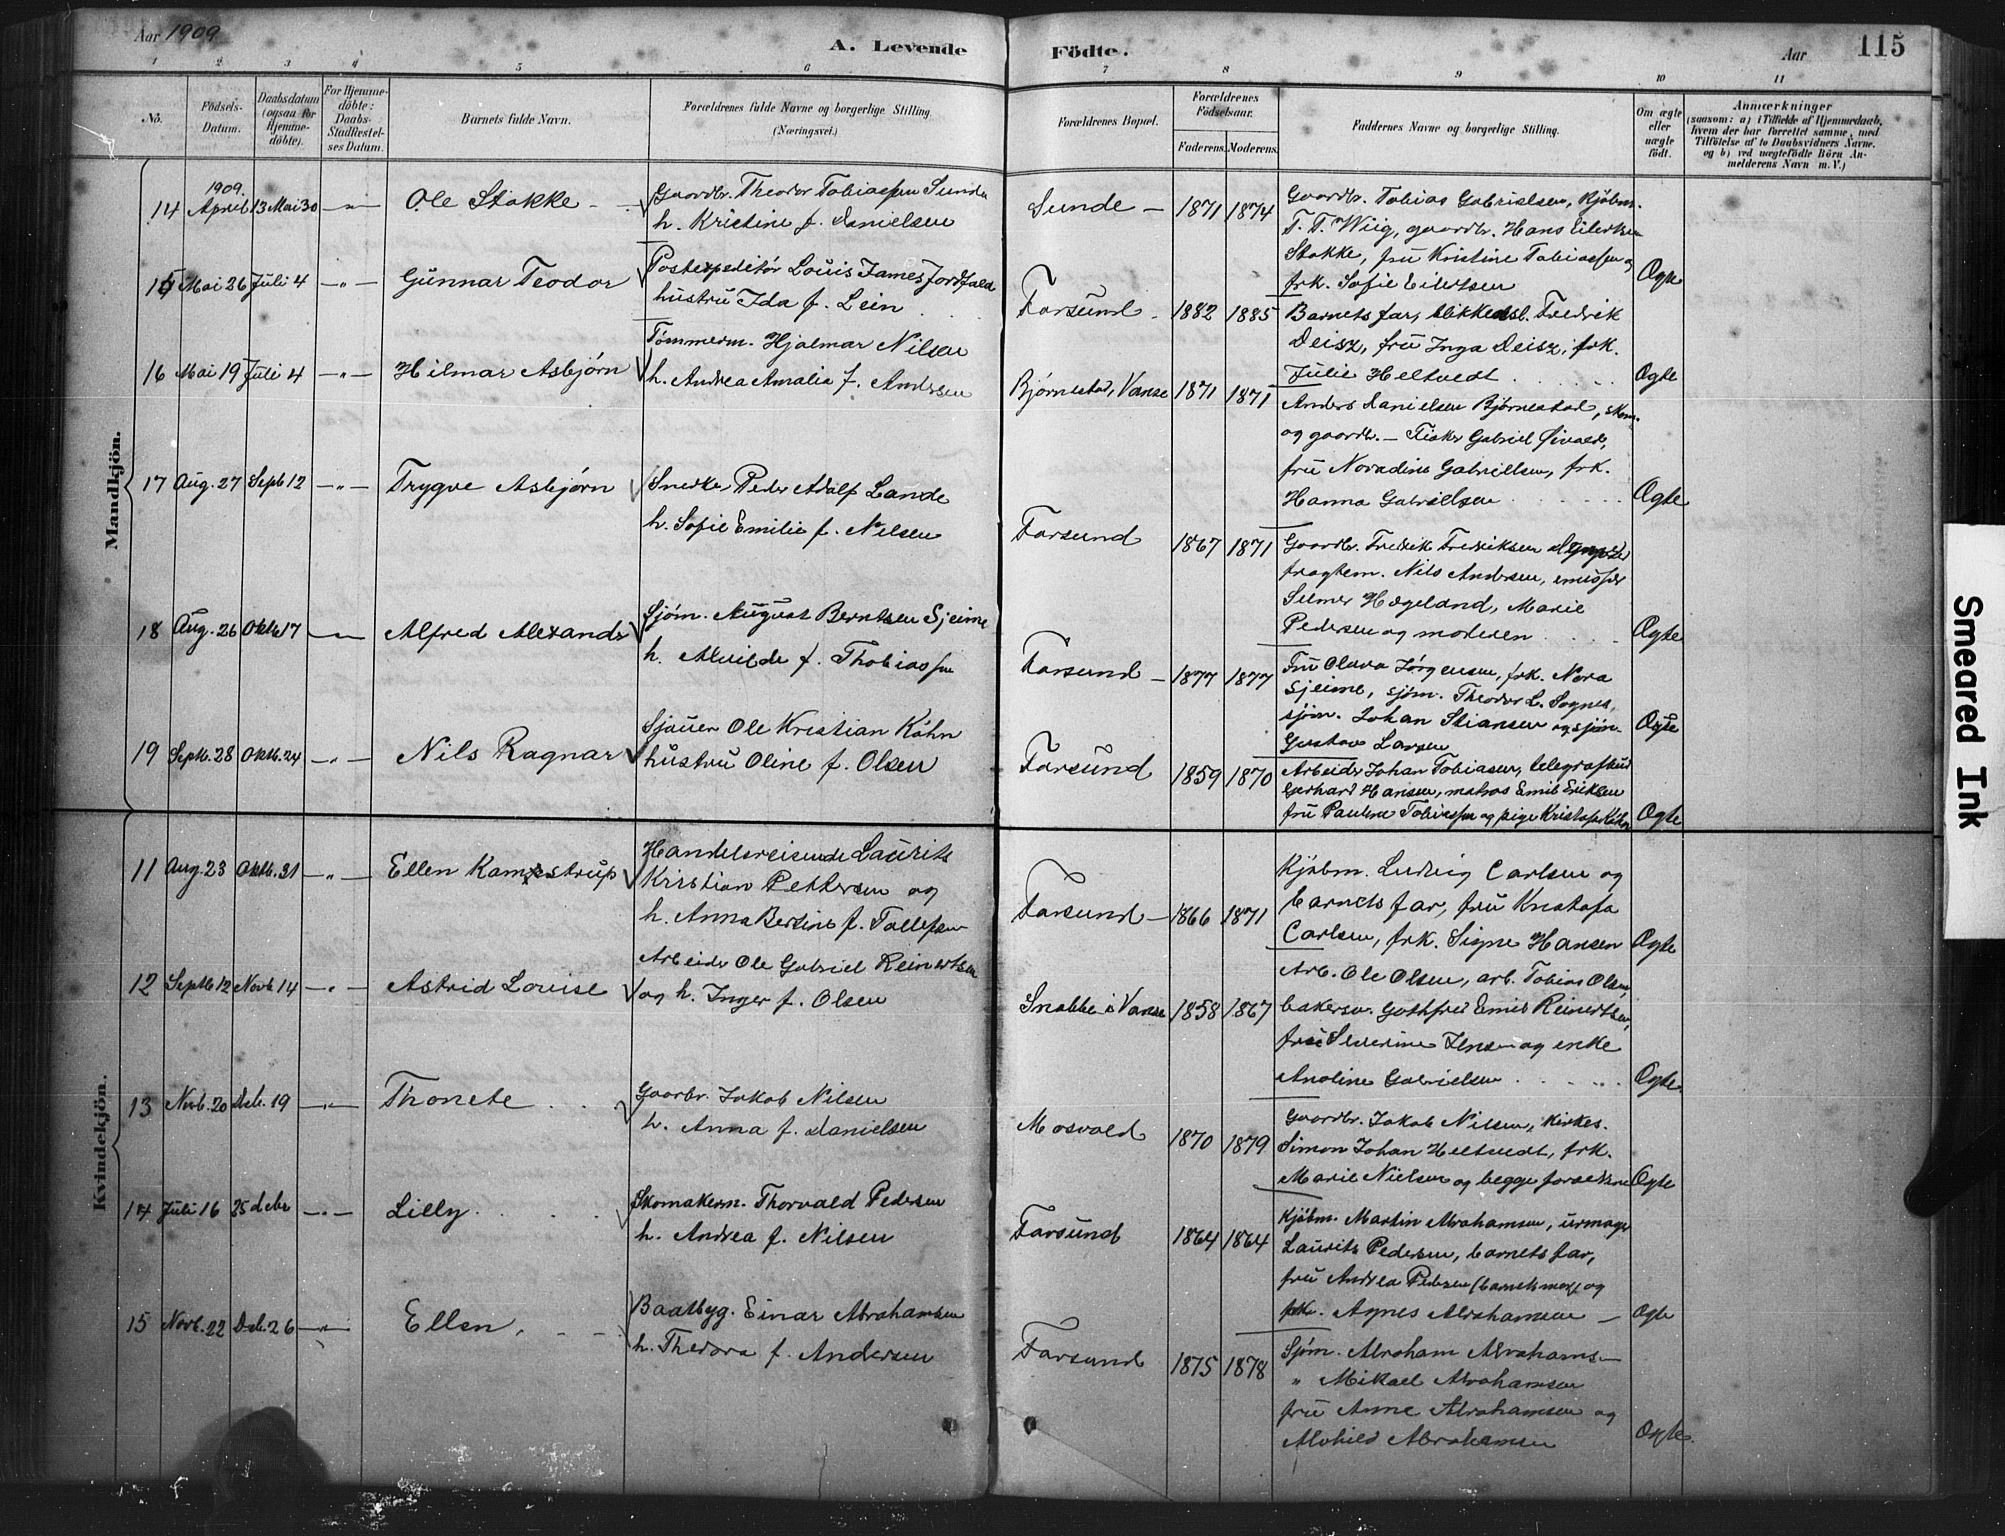 Aar 1909
A. Levende Födte.
Aar
115
1 2 3 4 5 6 7 8 9 10 11
No.
Födsels-
Datum.
Daabsdatum
(ogsaa for
Hjemme-
döbte).
For Hjemme-
döbte:
Daabs-
Stadfæstel-
ses Datum.
Barnets fulde Navn.
Forældrenes fulde Navne og borgerlige Stilling
(Næringsvei.)
Forældrenes Bopæl.
Forældrenes
Födselsaar.
Faderens. Moderens.
Faddernes Navne og borgerlige Stilling.
Om ægte
eller
uægte
födt.
Anmærkninger
(saasom: a) i Tilfælde af Hjemmedaab,
hvem der har forrettet samme, med
Tilföielse af to Daabsvidners Navne.
og b) ved uægtefödte Börn An-
melderens Navn m. V.)
Mandkjön.
1909.
14 April 13 Mai 30 -"- Ole Stokke
Gaardbr. Theodor Tobiassen Sunde
h. Kristine f. Danielsen
Sunde - 1871 1874
Gaardbr. Tobias Gabrielsen, Kjøbm.
T. T. Wiig, gaardbr. Hans Eilertsen
Stokke, fru Kristine Tobiassen og
frk. Sofie Eilertsen
Ægte
15 Mai 26 Juli 4 -"- Gunnar Teodor
Postexpeditør Louis James Jordfald
hustru Ida f. Lein
Farsund - 1882 1885
Barnets far, blikkensl. Fredrik
Deisz, fru Inga Deisz, frk.
Julie Heltvedt
Ægte
16 Mai 19 Juli 4 -"- Hilmar Asbjørn
Tømmerm. Hjalmar Nilsen
h. Andrea Amalia f. Andersen
Bjørnestad, Vanse 1871 1871
Anders Danielsen Bjørnestad, skom.
og gaardb. - Fisker Gabriel
fru Novadine Gabrielsen, frk.
Hanna Gabrielsen
Ægte
17 Aug. 27 Sept 12 -"- Trygve Asbjørn
Snedker Peder Adolf Lande
h. Sofie Emilie f. Nilsen
Farsund 1867 1871
Gaardbr. Fredrik Fredriksen
fragtem. Nils Andersen, emissær
Selmer Hægeland, Marie
Pedersen og moderen
Ægte
18 Aug. 26 Oktb 17 -"- Alfred Alexander
Sjøm. August Berntsen Sjeime
h. Alvilde f. Thobiassen
Farsund - 1877 1877
Fru Olava Jørgensen, frk. Nora
Sjeime, sjøm. Theodor L. Sognes,
sjøm. Johan Stiansen og sjøm.
Gustav Larsen
Ægte
19 Septb. 28 Oktb. 24 -"- Nils Ragnar
Sjauer Ole Kristian Køhn
hustru Oline f. Olsen
Farsund 1859 1870
Arbeider Johan Tobiasen, telegrafbud
Gerhard Hansen, matros Emil Eriksen
fru Pauline Tobiassen og pige Kristofa Køhn
Ægte
Kvindekjön.
11 Aug. 23 Oktb. 31 -"- Ellen Kamstrup
Handelsreisende Laurits
Kristian Pettersen og
h. Anna Bertine f. Tallefsen
Farsund - 1866 1871
Kjøbm. Ludvig Carlsen og
barnets far, fru Kristofa
Carlsen, frk. Signe Hansen
Ægte
12 Septb 12 Novb 14 -"- Astrid Louise
Arbeider Ole Gabriel Reinertsen
og h. Inger f. Olsen
Snabbe i Vanse 1858 1867
Arb. Ole Olsen, arb. Tobias Olsen,
bakersv. Gothfred Emil Reinertsen,
fru Severine Jensen og enke
Analine Gabrielsen
Ægte
13 Novb. 20 Deb. 19 -"- Thonete
Gaarbr. Jakob Nilsen
h. Anna f. Danielsen
Mosvold 1870 1879
Gaardbr. Jakob Nilsen, kirkes.
Simon Johan Heltvedt, frk.
Marie Nielsen og begge forældrene
Ægte
14 Juli 16 25 debr -"- Lilly
Skomakerm. Thorvald Pedersen
h. Andrea f. Nilsen
Farsund 1864 1864
Kjøbm. Martin Abrahamsen, urmager
Laurits Pedersen, barnets far,
fru Andrea Pedersen (barnets mor) og
frk. Agnes Abrahamsen -
Ægte
15 Novb. 22 Deb. 26 -"- Ellen
Baatbyg. Einar Abrahamsen
h. Thedora f. Andersen
Farsund 1875 1878
Sjøm. Abraham Abrahams-
" Mikael Abrahamsen
fru Anne Abrahamsen og
Alvhild Abrahamsen
Ægte.
Smeared Ink